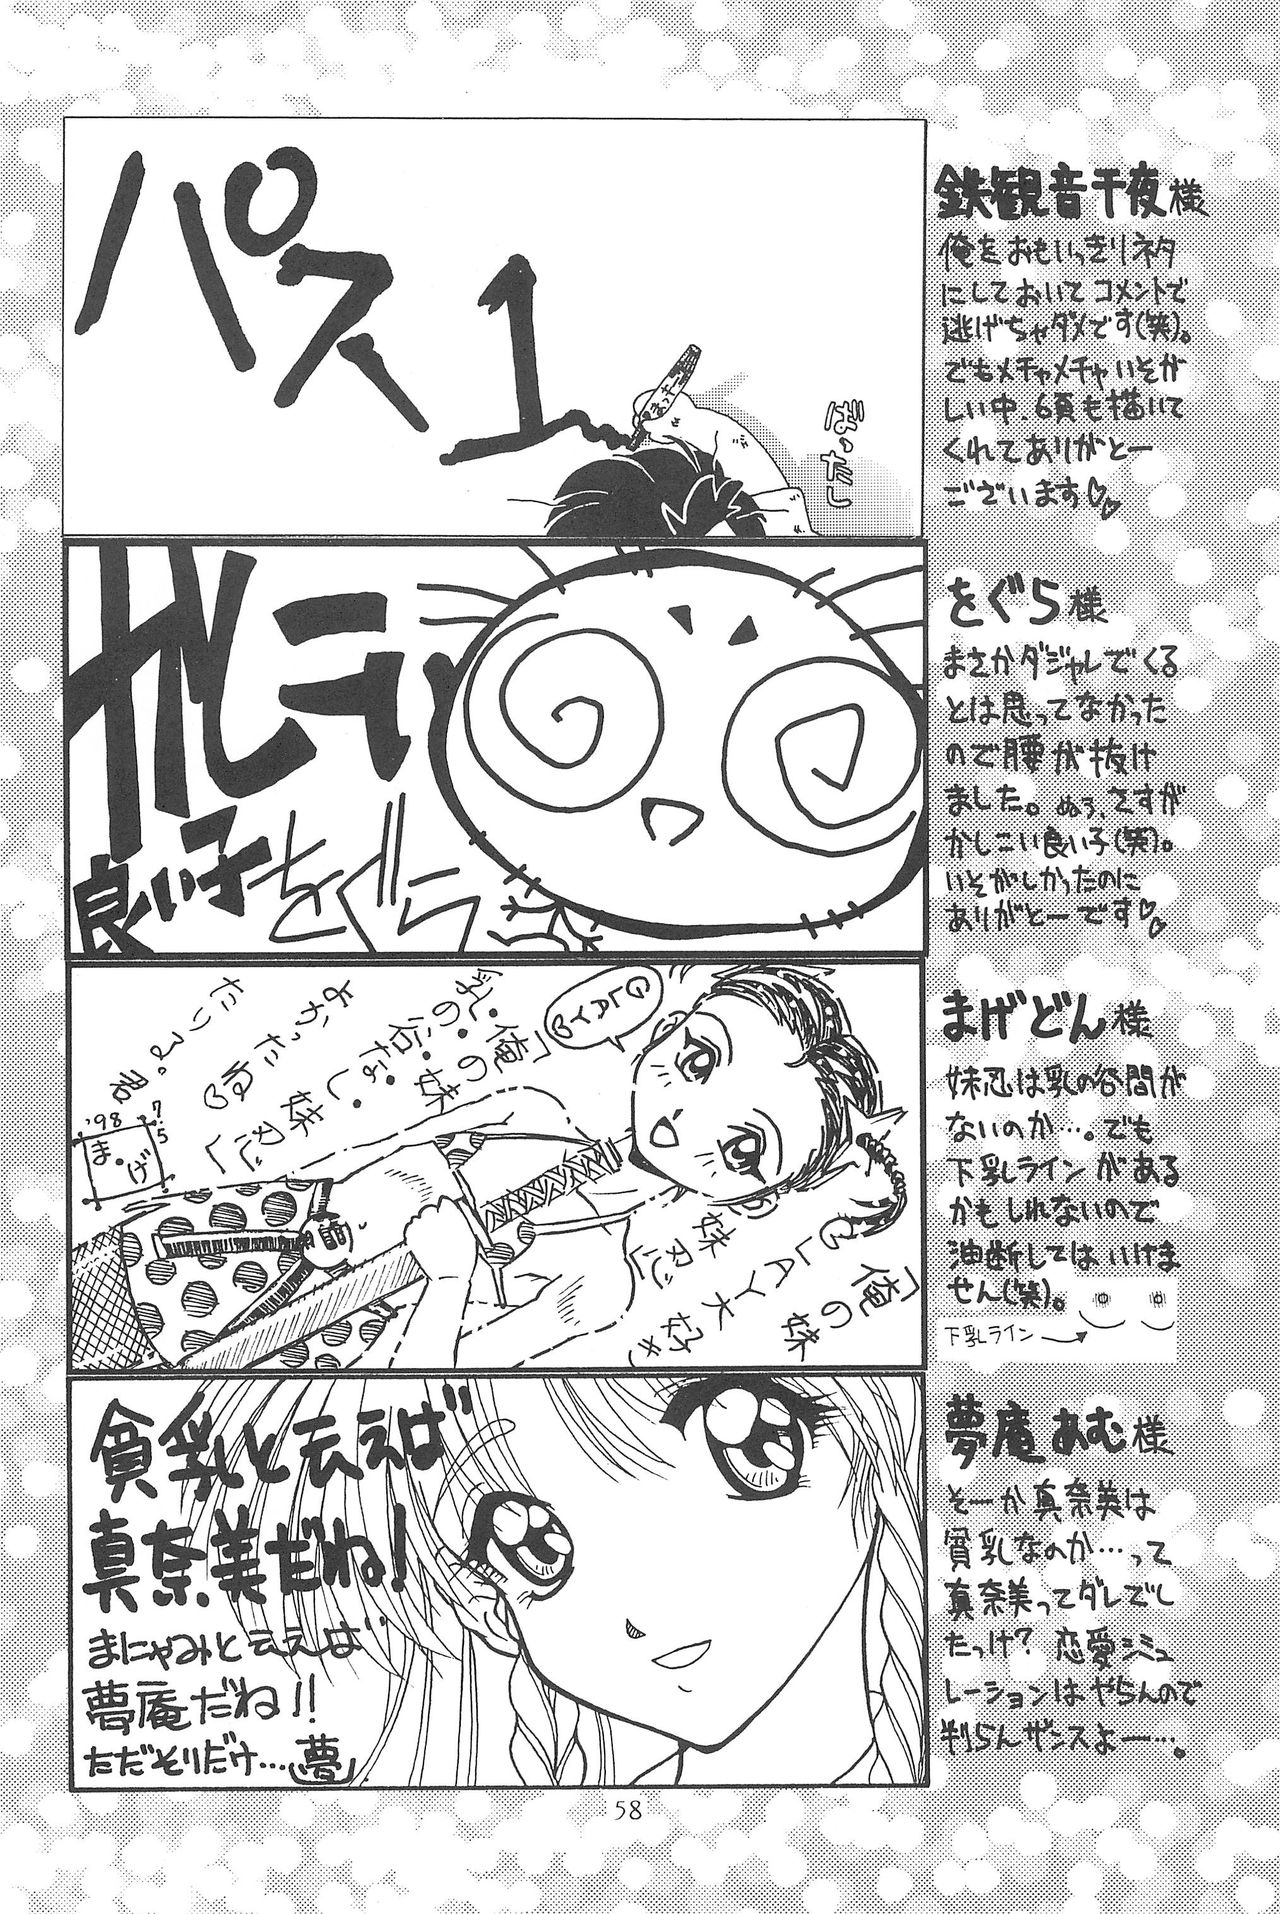 パス1
ばったし
鉄観音千夜様
俺をおもいっきりネタ
にしておいてコメントで
逃げちゃダメです(笑)。
でもメチャメチャいそが
しい中、6頁も描いて
くれてありがとー
ございます♡♡
良い子をぐら
をぐら様
まさかダジャレでくる
とは思ってなかった
ので腰が抜け
ました。ぬう、さすが
かしこい良い子(笑)。
いそがしかったのに
ありがとーです♡♡
GLAY♡
「俺の妹
乳・俺の妹
乳の谷なし
よかったね♡
たりつる。君
'98
7.5
ま.げ
「俺の妹
GLAY大好き
妹忍」
まげどん様
妹忍は乳の谷間が
ないのか…。でも
下乳ラインがある
かもしれないので
油断してはいけま
せん(笑)。
下乳ライン→
貧乳と云えば
真奈美だね!
まにゃみと云えば
夢庵だね!!
ただそりだけ…夢
夢庵あむ様
そーか真奈美は
貧乳なのか…って
真奈美ってダレでし
たっけ?恋愛シミュ
レーションはやらんので
判らんザンスよー…。
58